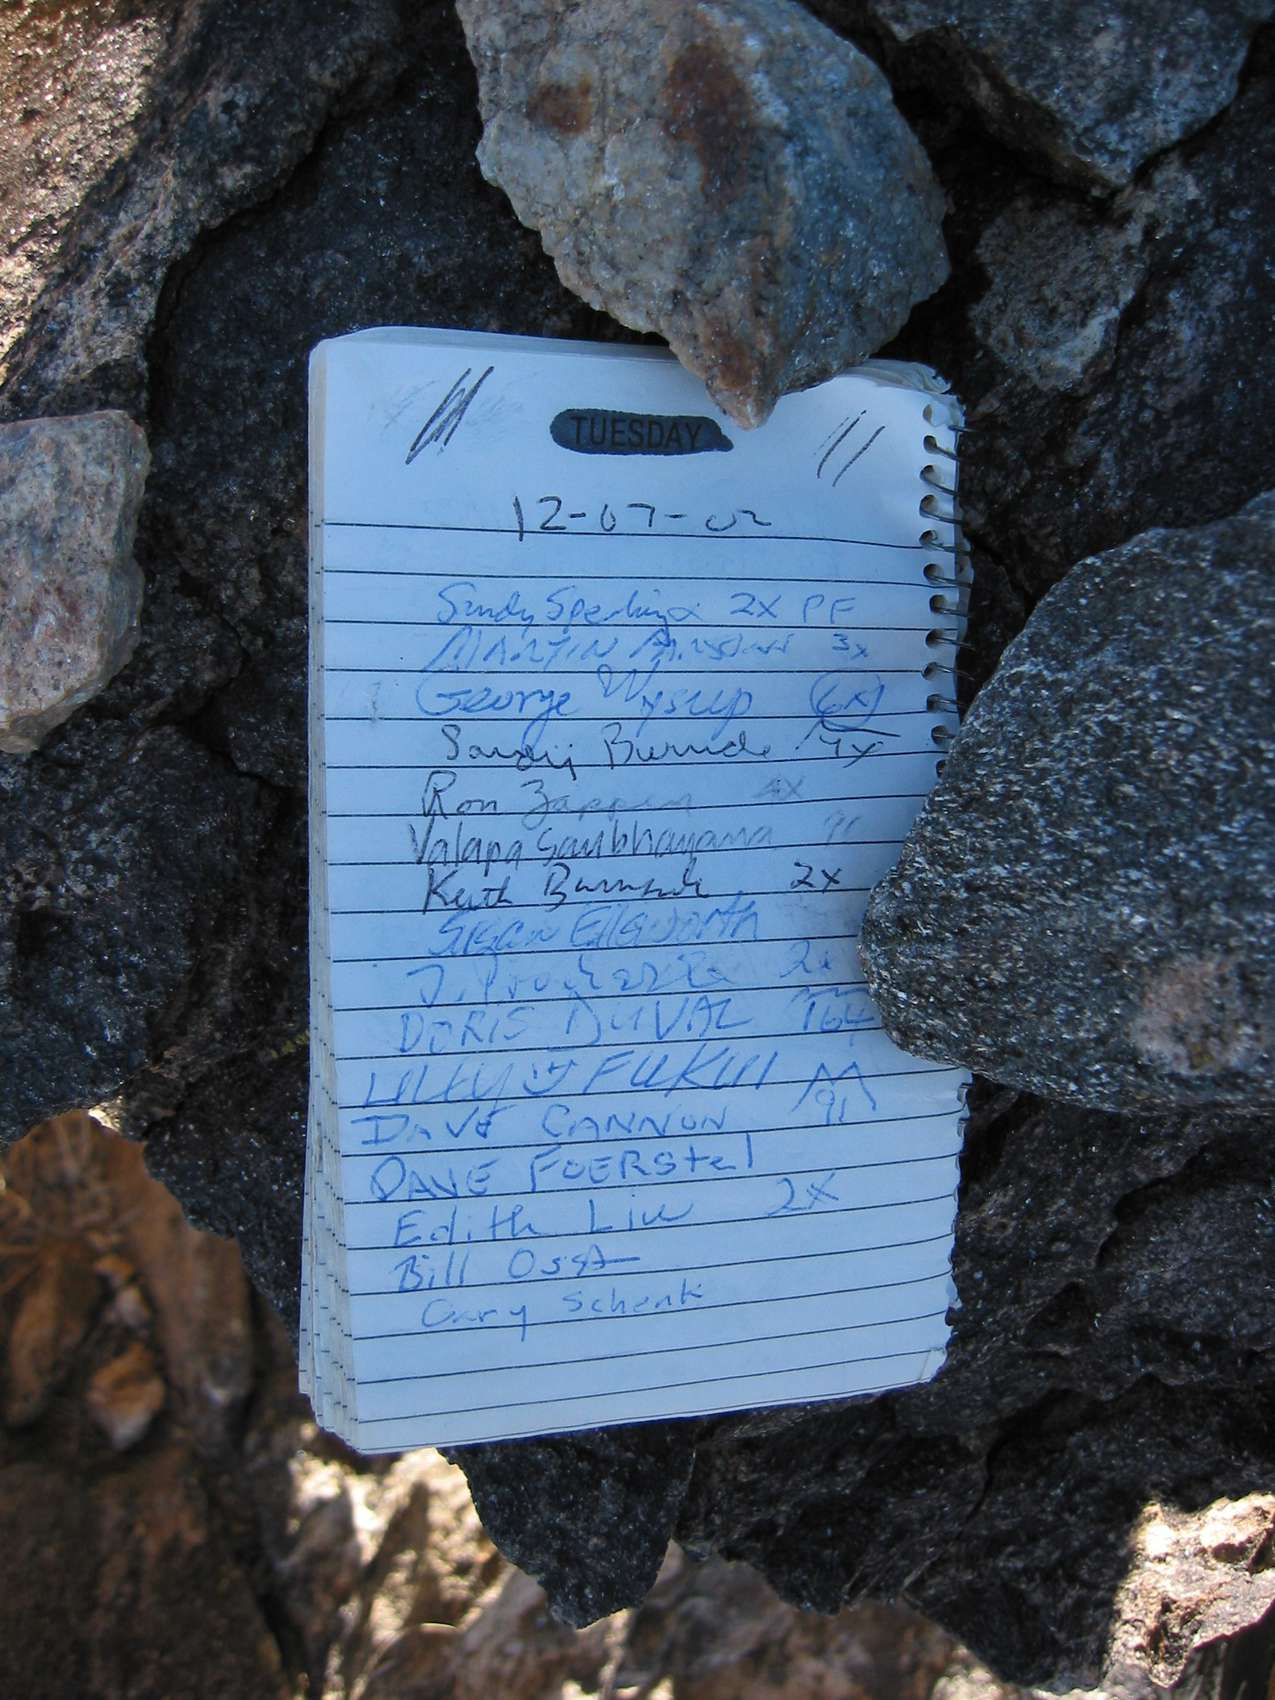 TUESDAY
12-07-02
Sandy Sperling 2X PF
MARTIN 3x
George Wysup 6X
Sandy Burnside 4x
Ron Zappen 4X
Valapa Saubhayana 91
Keith Burnside 2x
Susan Ellsworth
J. Prochazka 2x
DORIS DUVAL 164
LILLY FUKUI
DAVE CANNON 91
DAVE FOERStel
Edith Liu 2X
Bill Ossa
Gary Schenk